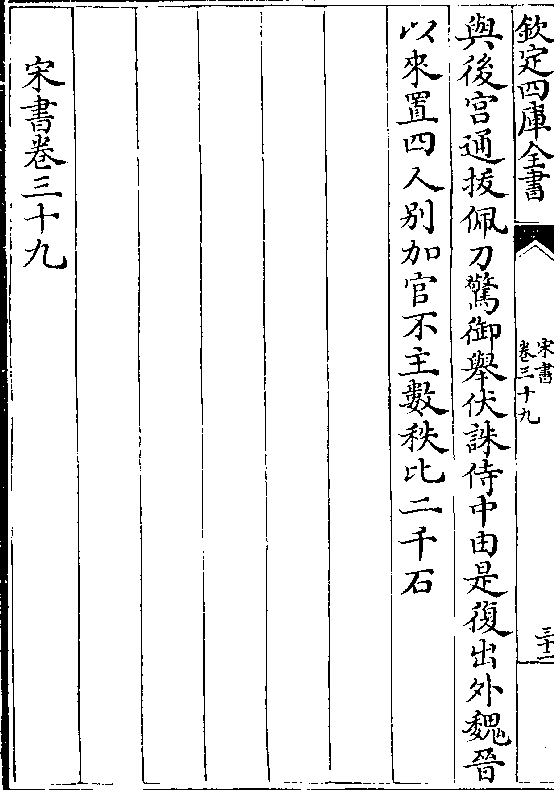 欽定四庫全書
宋書
卷三十九
三十二
與後宫通拔佩刀驚御舉伏誅侍中由是復出外魏晉
以來置四人别加官不主數秩比二千石
宋書卷三十九